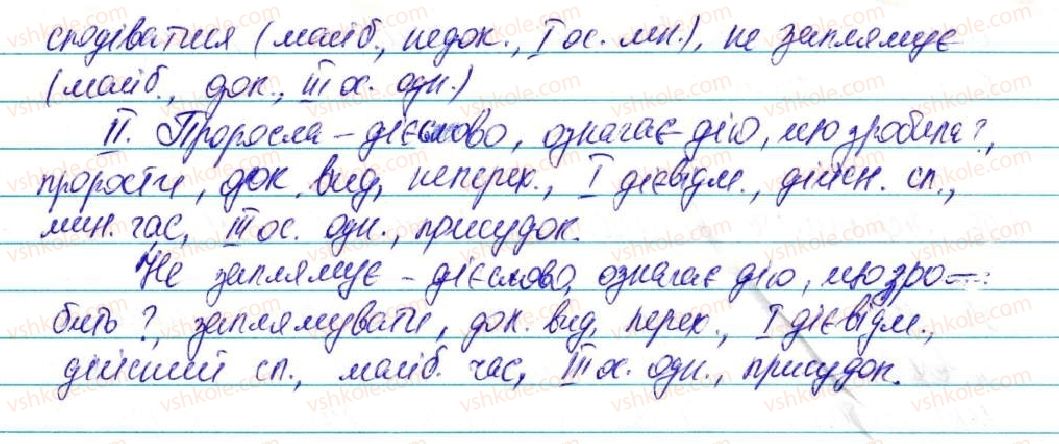 сподіватися (майб., недок., І ос. мн.), не заплямує
(майб., док., ІІІ ос. одн.)
ІІ. Проросла – дієслово, означає дію, що зробила?,
прорости, док. вид, неперех., І дієвідм., дійсн. сп.,
мин. час, ІІІ ос. одн., присудок.
Не заплямує – дієслово, означає дію, що зро-
бить?, заплямувати, док. вид, перех., І дієвідм.,
дійсний сп., майб. час, ІІІ ос. одн., присудок.